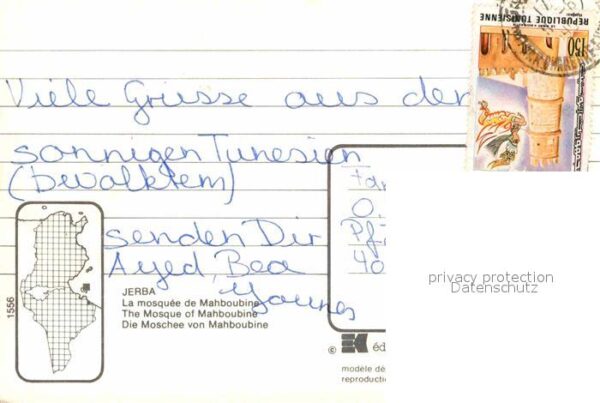 Viele Grüsse aus dem
sonnigen Tunesien
(bewölktem)
senden Dir
Ayed, Bea
Younes
REPUBLIQUE TUNISIENNE
150
1556
JERBA
La mosquée de Mahboubine
The Mosque of Mahboubine
Die Moschee von Mahboubine
©
modèle dé
reproductio
privacy protection
Datenschutz